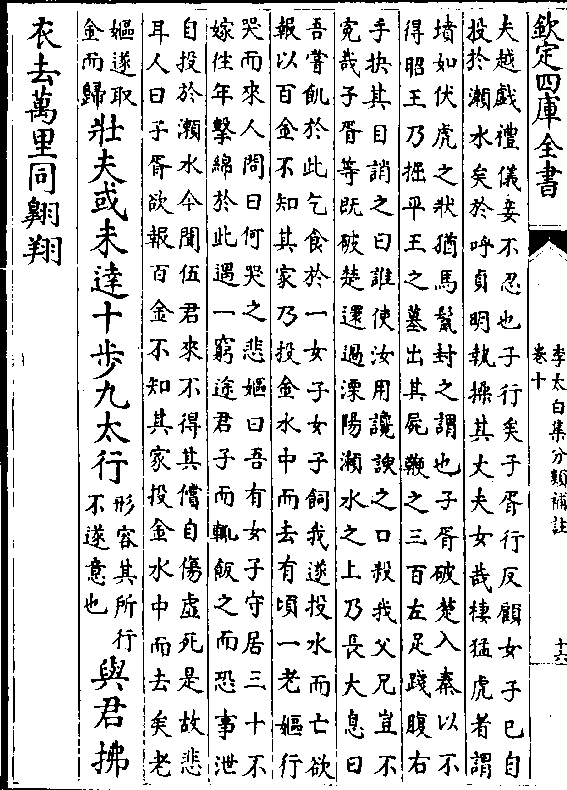 欽定四庫全書
李太白集分類補註
卷十
十六
夫越戲禮儀妾不忍也子行矣子胥行反顧女子已自
投於瀨水矣於呼貞明執操其丈夫女哉棲猛虎者謂
墳如伏虎之狀猶馬鬛封之謂也子胥破楚入秦以不
得昭王乃掘平王之墓出其屍鞭之三百左足踐腹右
手抉其目誚之曰誰使汝用讒諛之口殺我父兄豈不
寃哉子胥等既破楚還過溧陽瀨水之上乃長大息曰
吾嘗飢於此乞食於一女子女子飼我遂投水而亡欲
報以百金不知其家乃投金水中而去有頃一老嫗行
哭而來人問曰何哭之悲嫗曰吾有女子守居三十不
嫁往年擊綿於此遇一窮途君子而輒飯之而恐事泄
自投於瀨水今聞伍君來不得其償自傷虛死是故悲
耳人曰子胥欲報百金不知其家投金水中而去矣老
嫗遂取金而歸壯夫或未達十步九太行形容其所行不遂意也與君拂
衣去萬里同翺翔